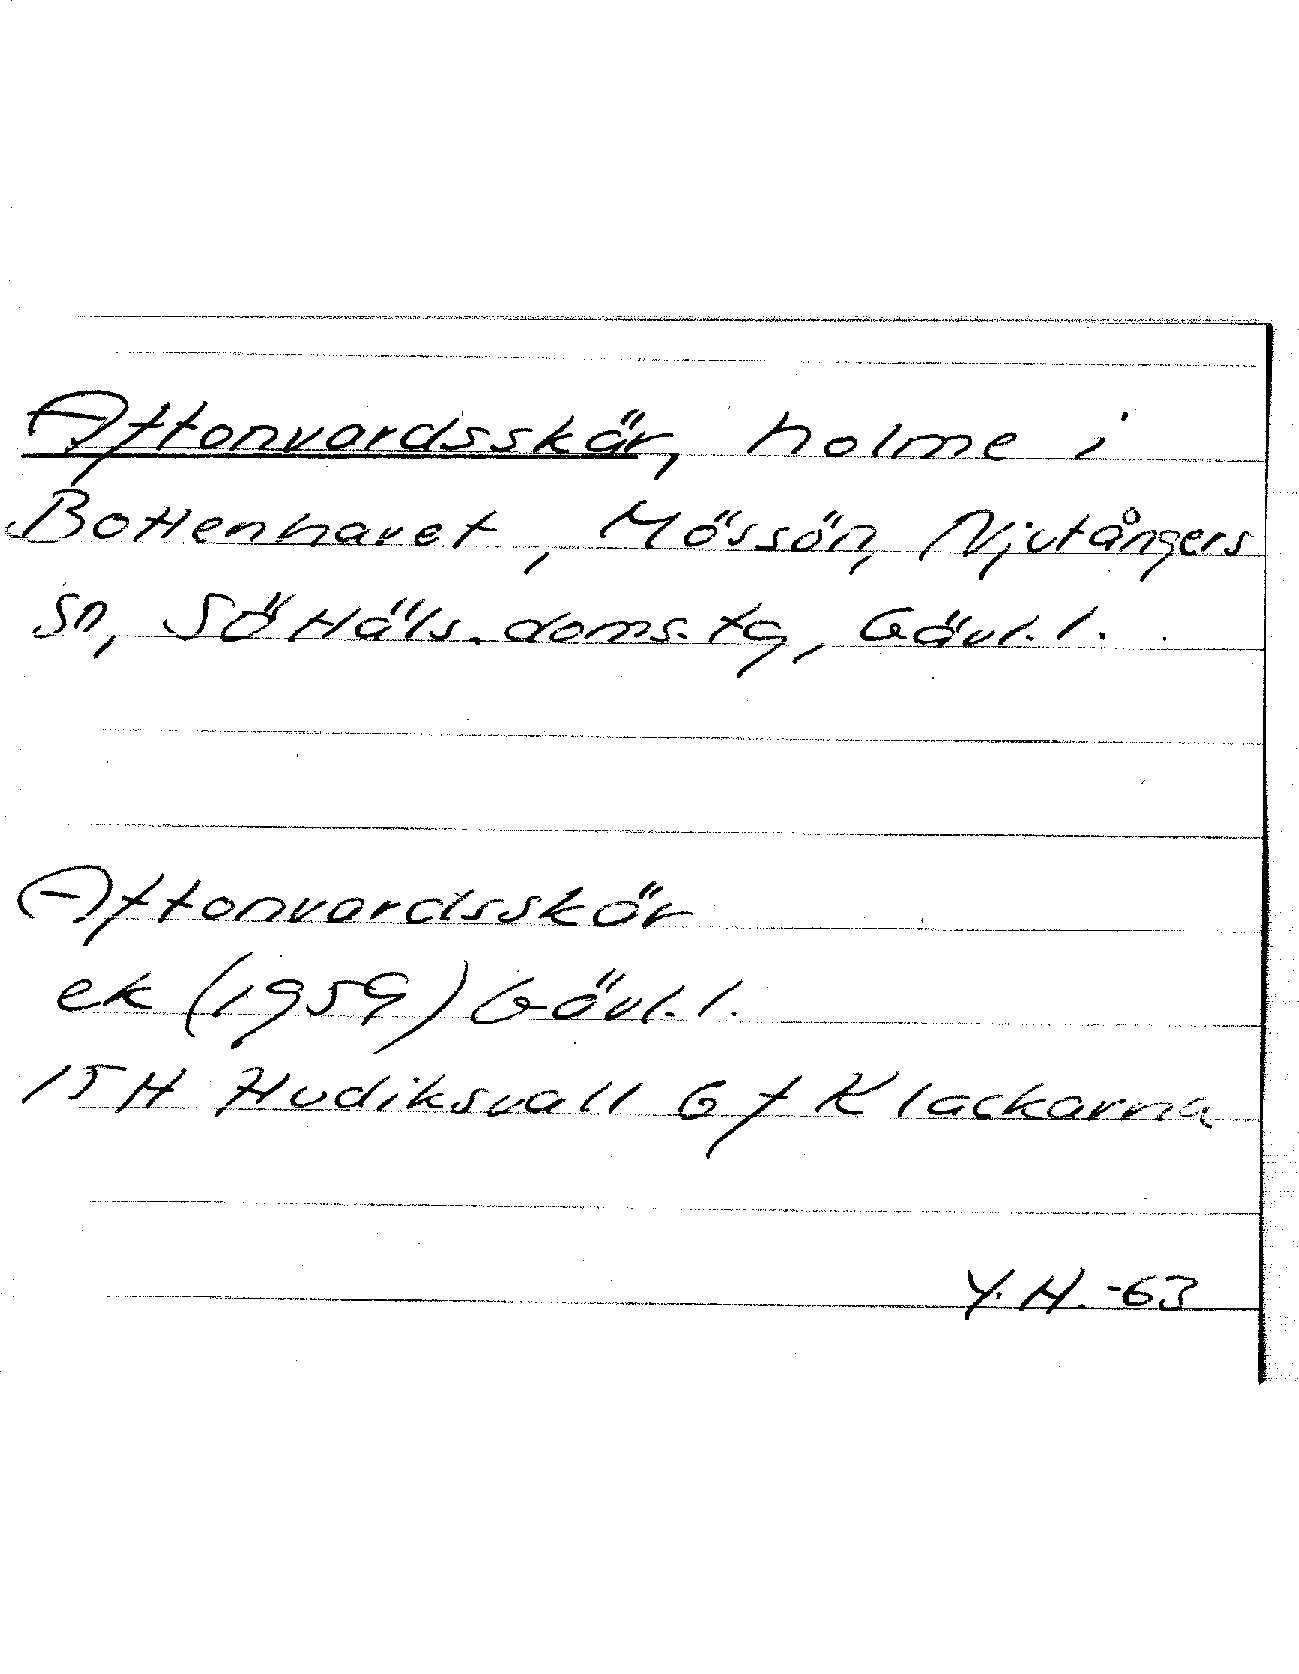 Aftonvardsskär, holme i
Bottenhavet, Mössön, Njutångers
sn, Sö Häls. doms. tg, Gävl. l.
Aftonvardsskär
ek (1959) Gävl. l.
15H Hudiksvall 6f Klackarna
Y. H. -63